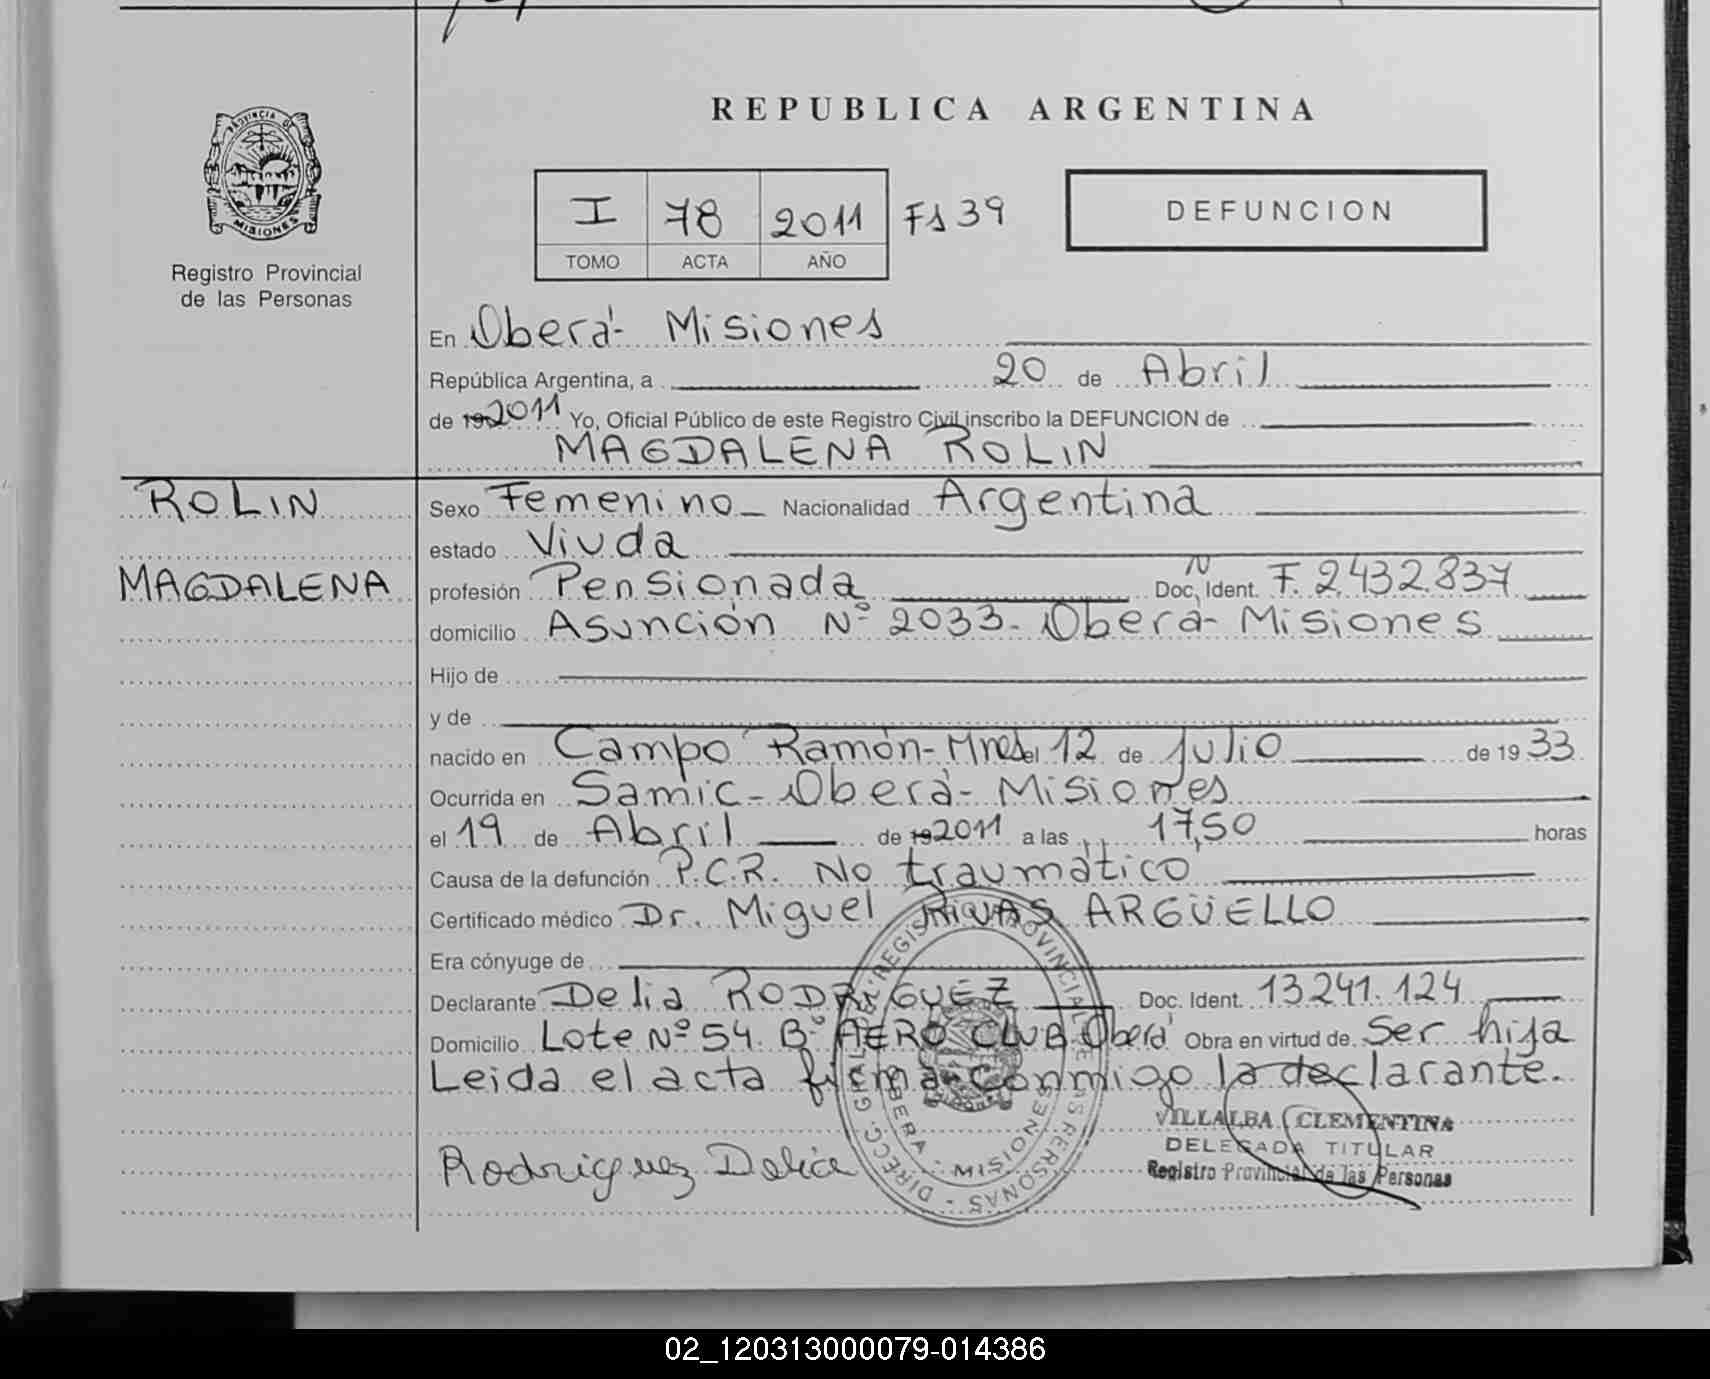 REPUBLICA ARGENTINA
PROVINCIA DE
MISIONES
Registro Provincial
de las Personas
I 78 2011 Fs 39
TOMO ACTA AÑO
DEFUNCION
En Oberá - Misiones
República Argentina, a 20 de Abril
de 19 2011 Yo, Oficial Público de este Registro Civil inscribo la DEFUNCION de
MAGDALENA ROLIN
ROLIN
MAGDALENA
Sexo Femenino Nacionalidad Argentina
estado Viuda
profesión Pensionada Doc. N Ident. F. 2432.837
domicilio Asunción Nº 2033 - Oberá - Misiones
Hijo de
y de
nacido en Campo Ramón - Mnes el 12 de Julio de 19 33
Ocurrida en Samic - Oberá - Misiones
el 19 de Abril de 19 2011 a las 17,50 horas
Causa de la defunción P.C.R. No traumático
Certificado médico Dr. Miguel RIVAS ARGÜELLO
Era cónyuge de
Declarante Delia RODRIGUEZ Doc. Ident. 13241.124
Domicilio Lote Nº 54. Bº AERO CLUB Oberá Obra en virtud de Ser hija
Leida el acta firma conmigo la declarante.
Rodriguez Delia
DIRECC. GRAL. DEL REGISTRO PROVINCIAL DE LAS PERSONAS -
OBERA - MISIONES
VILLALBA CLEMENTINA
DELEGADA TITULAR
Registro Provincial de las Personas
02_120313000079-014386